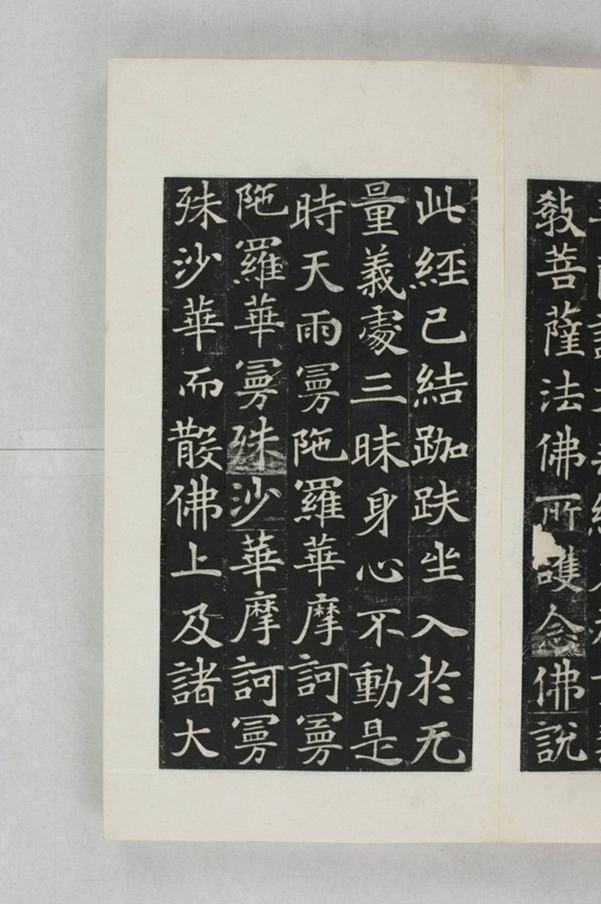 教菩薩法佛所護念佛說
此經已結跏趺坐入於无
量義處三昧身心不動是
時天雨曼陁羅華摩訶曼
陁羅華曼殊沙華摩訶曼
殊沙華而散佛上及諸大